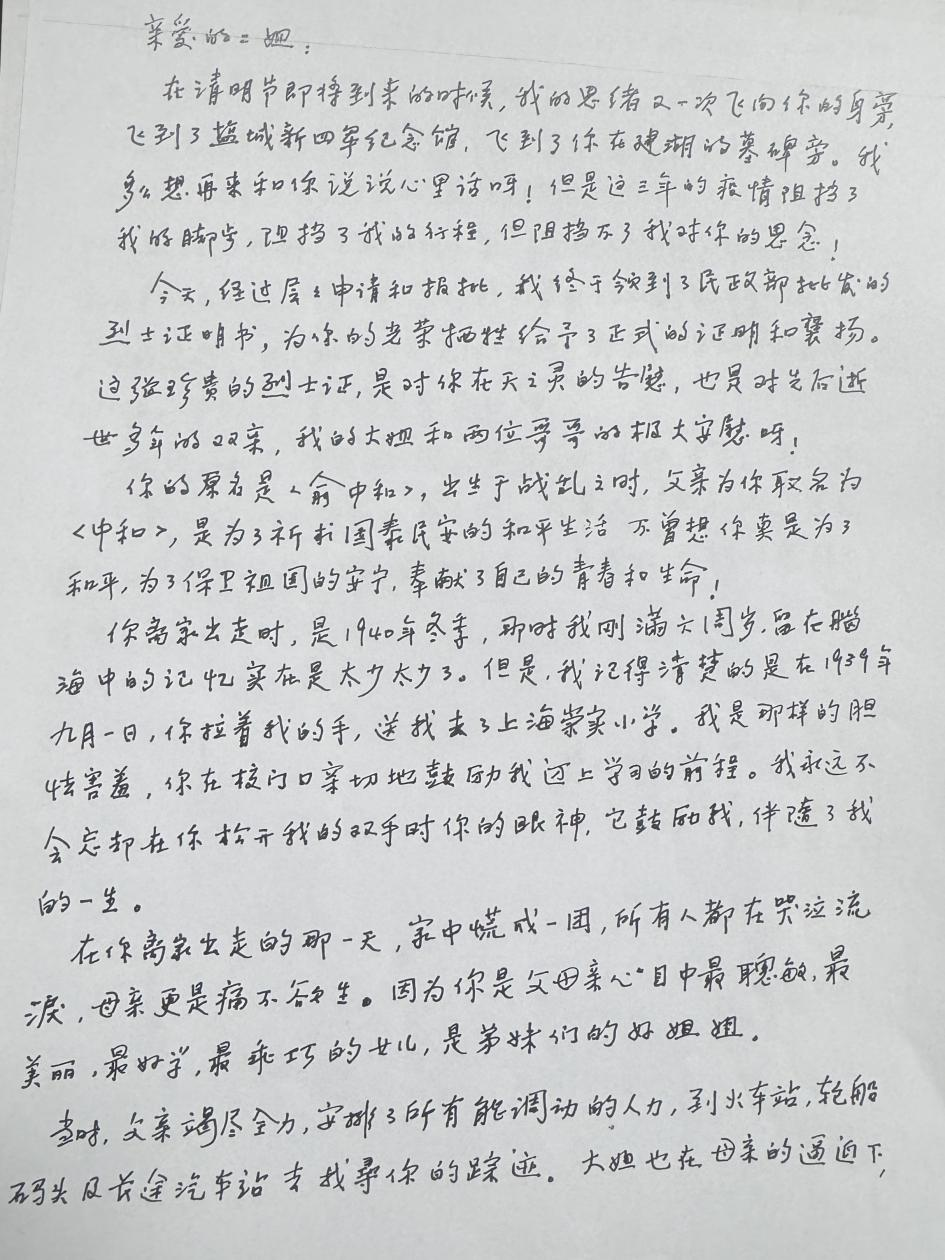 亲爱的二姐：
在清明节即将到来的时候，我的思绪又一次飞向你的身旁，
飞到了盐城新四军纪念馆，飞到了你在建湖的墓碑旁。我
多么想再来和你说说心里话呀！但是这三年的疫情阻挡了
我的脚步，阻挡了我的行程，但阻挡不了我对你的思念！
今天，经过层层申请和报批，我终于领到了民政部批发的
烈士证明书，为你的光荣牺牲给予了正式的证明和褒扬。
这张珍贵的烈士证，是对你在天之灵的告慰，也是对先后逝
世多年的双亲，我的大姐和两位哥哥的极大安慰呀！
你的原名是〈俞中和〉，出生于战乱之时，父亲为你取名为
〈中和〉，是为了祈求国泰民安的和平生活 不曾想你真是为了
和平，为了保卫祖国的安宁，奉献了自己的青春和生命！
你离家出走时，是1940年冬季，那时我刚满六周岁，留在脑
海中的记忆实在是太少太少了。但是，我记得清楚的是在1939年
九月一日，你拉着我的手，送我去了上海崇实小学。我是那样的胆
怯害羞，你在校门口亲切地鼓励我迈上学习的前程。我永远不
会忘却在你松开我的双手时你的眼神，它鼓励我，伴随了我
的一生。
在你离家出走的那一天，家中慌成一团，所有人都在哭泣流
淚，母亲更是痛不欲生。因为你是父母亲心目中最聪敏，最
美丽，最好学，最乖巧的女儿，是弟妹们的好姐姐。
当时，父亲竭尽全力，安排了所有能调动的人力，到火车站，轮船
码头及长途汽车站去找寻你的踪迹。大姐也在母亲的逼迫下，